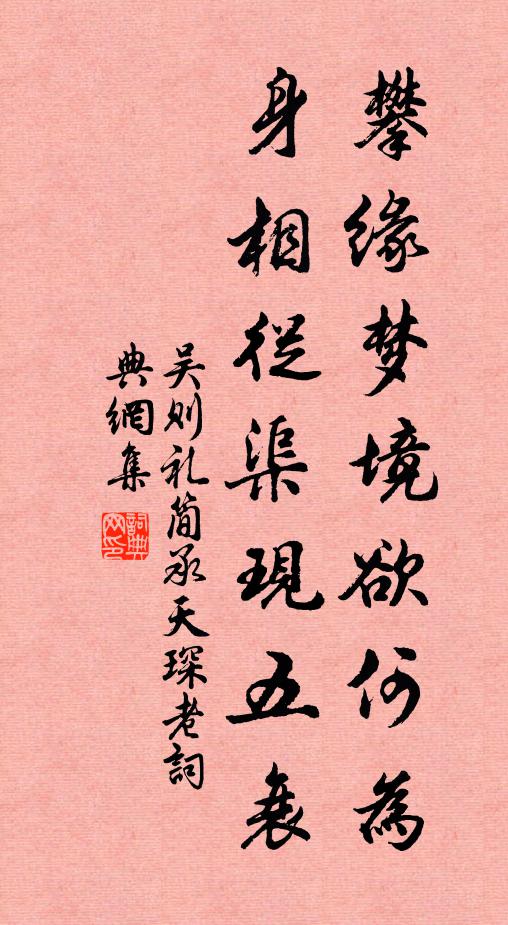 攀缘梦境欲何為
身相從渠現五衰
吴则礼简承天琛老詞
典網集
詞典网印